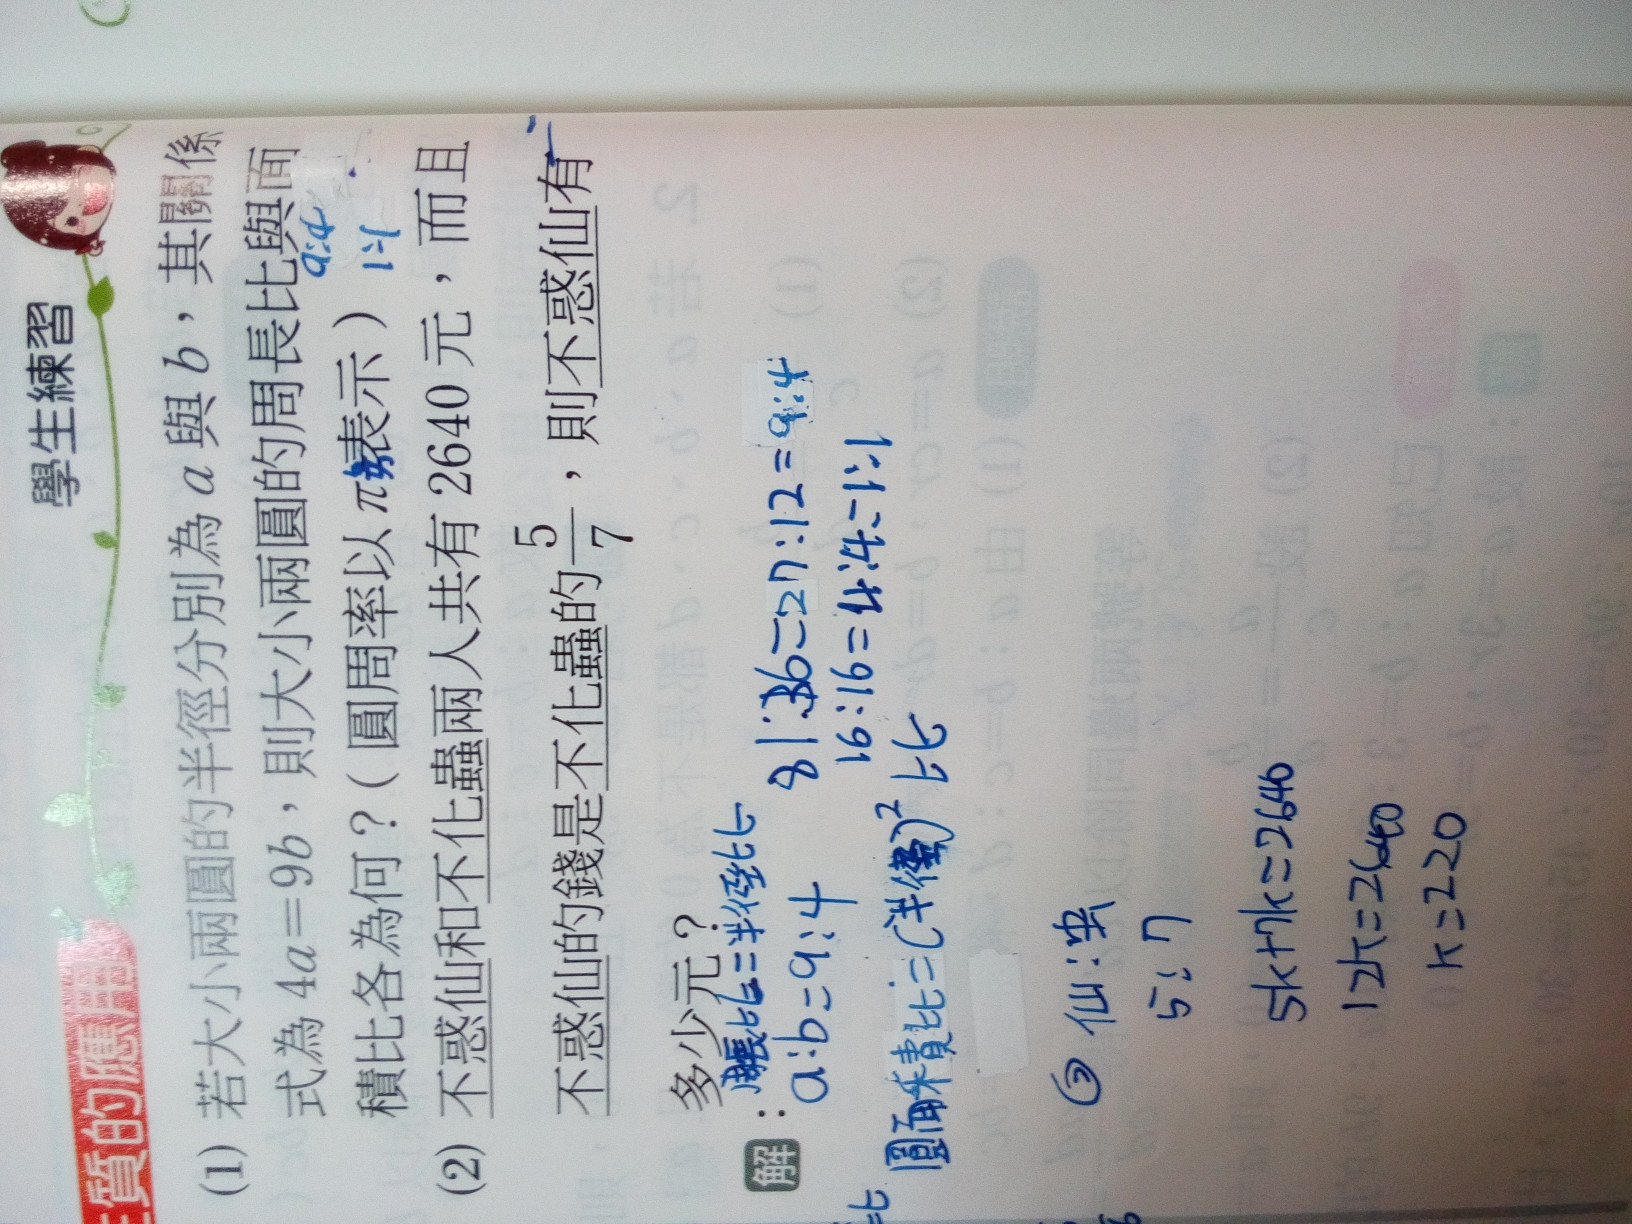 質的應用
學生練習
(1) 若大小兩圓的半徑分別為 a 與 b，其關係
式為 4a=9b，則大小兩圓的周長比與面
積比各為何？(圓周率以 π 表示)
9:4
1:1
(2) 不惑仙和不化蟲兩人共有 2640 元，而且
不惑仙的錢是不化蟲的 5/7，則不惑仙有
多少元？
解：
周長比=半徑比
a:b=9:4
81:36=27:12=9:4
16:16=4:4=1:1
圓面積比=(半徑)² 比
② 仙:虫
5:7
5k+7k=2640
12k=2640
k=220